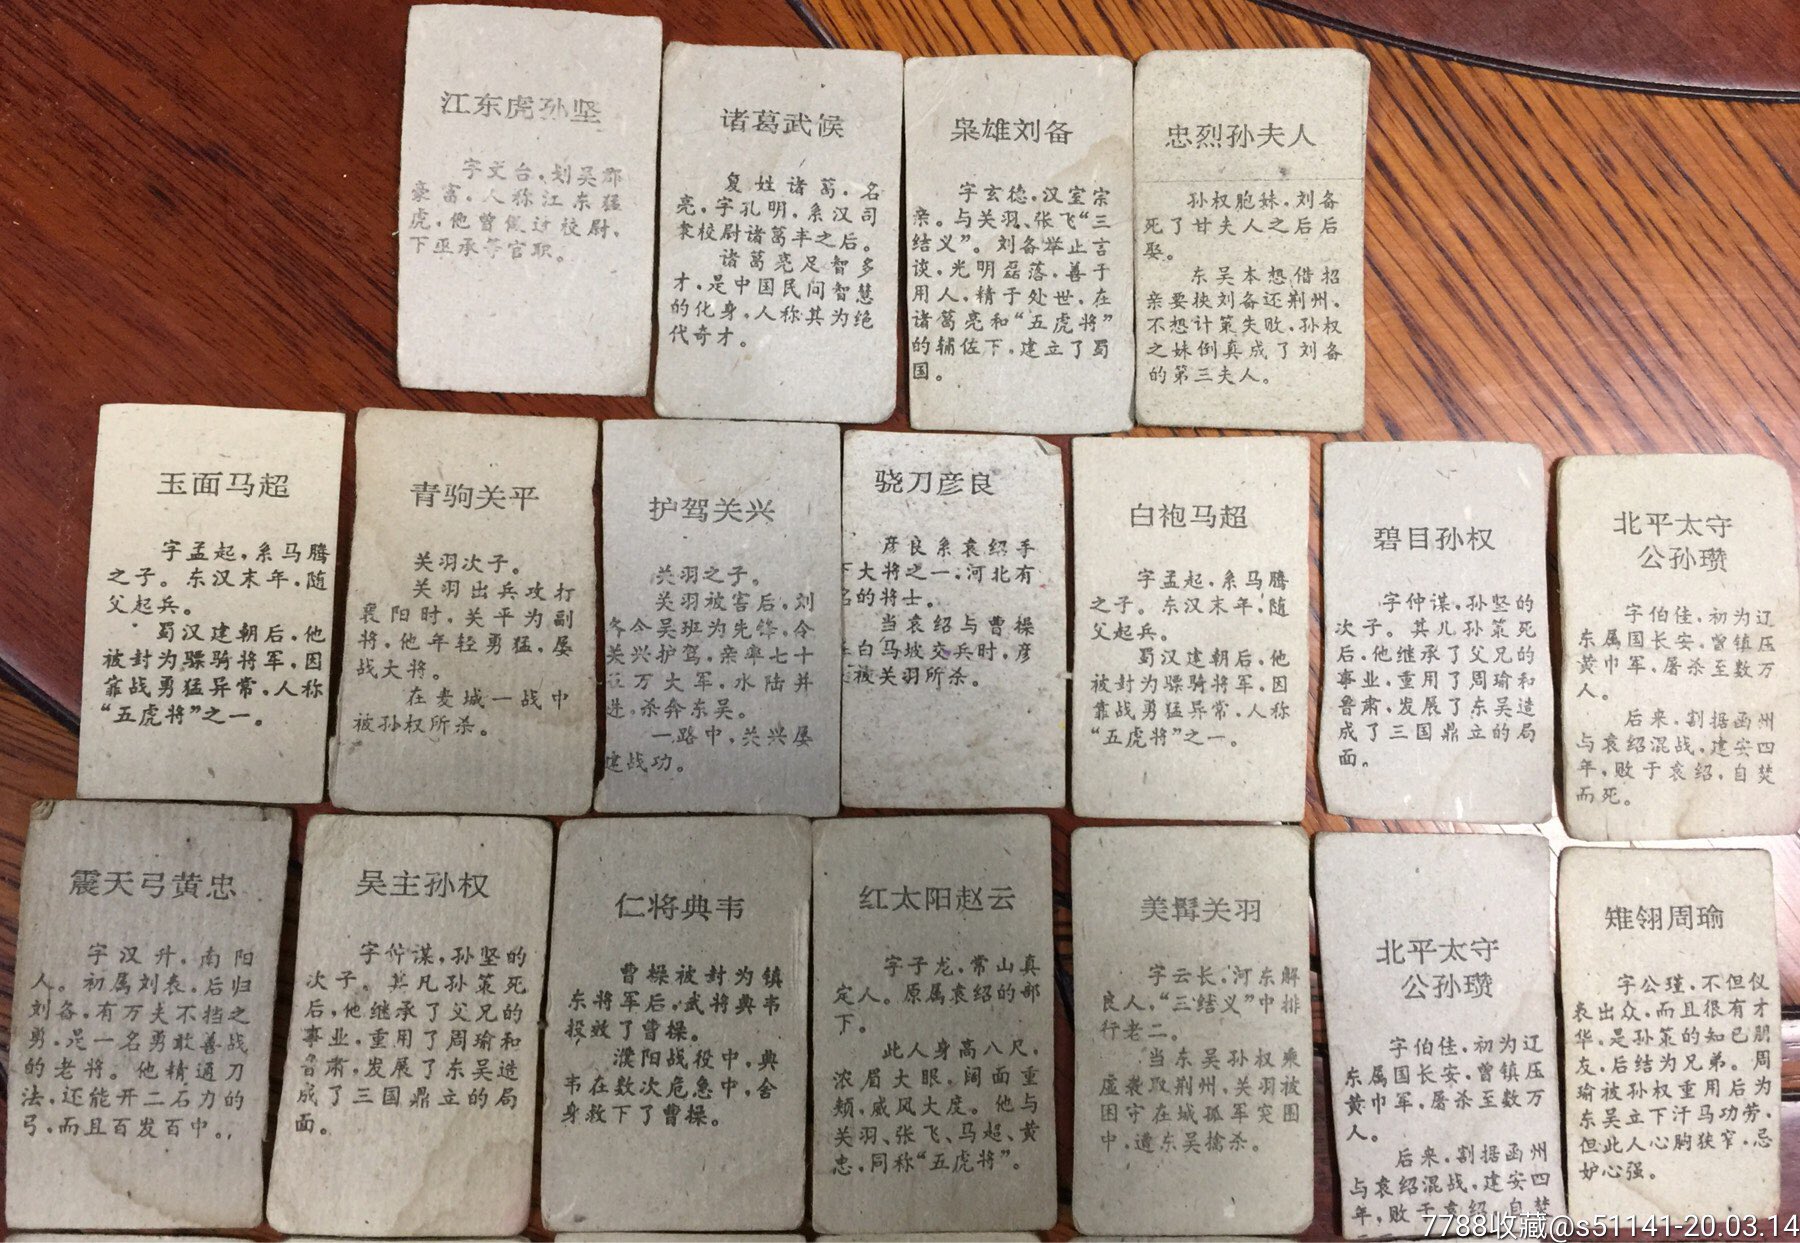 江东虎孙坚
字文台，划吴郡
豪富，人称江东猛
虎，他曾做过校尉、
下巫承等官职。
诸葛武候
复姓诸葛，名
亮，字孔明，系汉司
隶校尉诸葛丰之后。
诸葛亮足智多
才，是中国民间智慧
的化身，人称其为绝
代奇才。
枭雄刘备
字玄德，汉室宗
亲。与关羽、张飞“三
结义”。刘备举止言
谈，光明磊落，善于
用人，精于处世，在
诸葛亮和“五虎将”
的辅佐下，建立了蜀
国。
忠烈孙夫人
孙权胞妹，刘备
死了甘夫人之后后
娶。
东吴本想借招
亲要挟刘备还荆州，
不想计策失败，孙权
之妹倒真成了刘备
的第三夫人。
玉面马超
字孟起，系马腾
之子。东汉末年，随
父起兵。
蜀汉建朝后，他
被封为骠骑将军，因
靠战勇猛异常，人称
“五虎将”之一。
青驹关平
关羽次子。
关羽出兵攻打
襄阳时，关平为副
将，他年轻勇猛，屡
战大将。
在麦城一战中
被孙权所杀。
护驾关兴
关羽之子。
关羽被害后，刘
备令吴班为先锋，令
关兴护驾，亲率七十
五万大军，水陆并
进，杀奔东吴。
一路中，关兴屡
建战功。
骁刀彦良
彦良系袁绍手
下大将之一，河北有
名的将士。
当袁绍与曹操
白马坡交兵时，彦
被关羽所杀。
白袍马超
字孟起，系马腾
之子。东汉末年，随
父起兵。
蜀汉建朝后，他
被封为骠骑将军，因
靠战勇猛异常，人称
“五虎将”之一。
碧目孙权
字仲谋，孙坚的
次子。其儿孙策死
后，他继承了父兄的
事业，重用了周瑜和
鲁肃，发展了东吴造
成了三国鼎立的局
面。
北平太守
公孙瓒
字伯佳，初为辽
东属国长安，曾镇压
黄巾军，屠杀至数万
人。
后来，割据函州
与袁绍混战，建安四
年，败于袁绍，自焚
而死。
震天弓黄忠
字汉升，南阳
人。初属刘表，后归
刘备，有万夫不挡之
勇，是一名勇敢善战
的老将。他精通刀
法，还能开二石力的
弓，而且百发百中。
吴主孙权
字仲谋，孙坚的
次子。其凡孙策死
后，他继承了父兄的
事业，重用了周瑜和
鲁肃，发展了东吴造
成了三国鼎立的局
面。
仁将典韦
曹操被封为镇
东将军后，武将典韦
投效了曹操。
濮阳战役中，典
韦在数次危急中，舍
身救下了曹操。
红太阳赵云
字子龙，常山真
定人。原属袁绍的部
下。
此人身高八尺，
浓眉大眼，阔面重
颊，威风大度。他与
关羽、张飞、马超、黄
忠，同称“五虎将”。
美髯关羽
字云长，河东解
良人，“三结义”中排
行老二。
当东吴孙权乘
虚袭取荆州，关羽被
困守在城孤军突围
中，遭东吴擒杀。
北平太守
公孙瓒
字伯佳，初为辽
东属国长安，曾镇压
黄巾军，屠杀至数万
人。
后来，割据函州
与袁绍混战，建安四
年，败于袁绍，自焚
雉翎周瑜
字公瑾，不但仪
表出众，而且很有才
华，是孙策的知已朋
友，后结为兄弟。周
瑜被孙权重用后为
东吴立下汗马功劳，
但此人心胸狭窄，忌
妒心强。
7788收藏@s51141-20.03.14